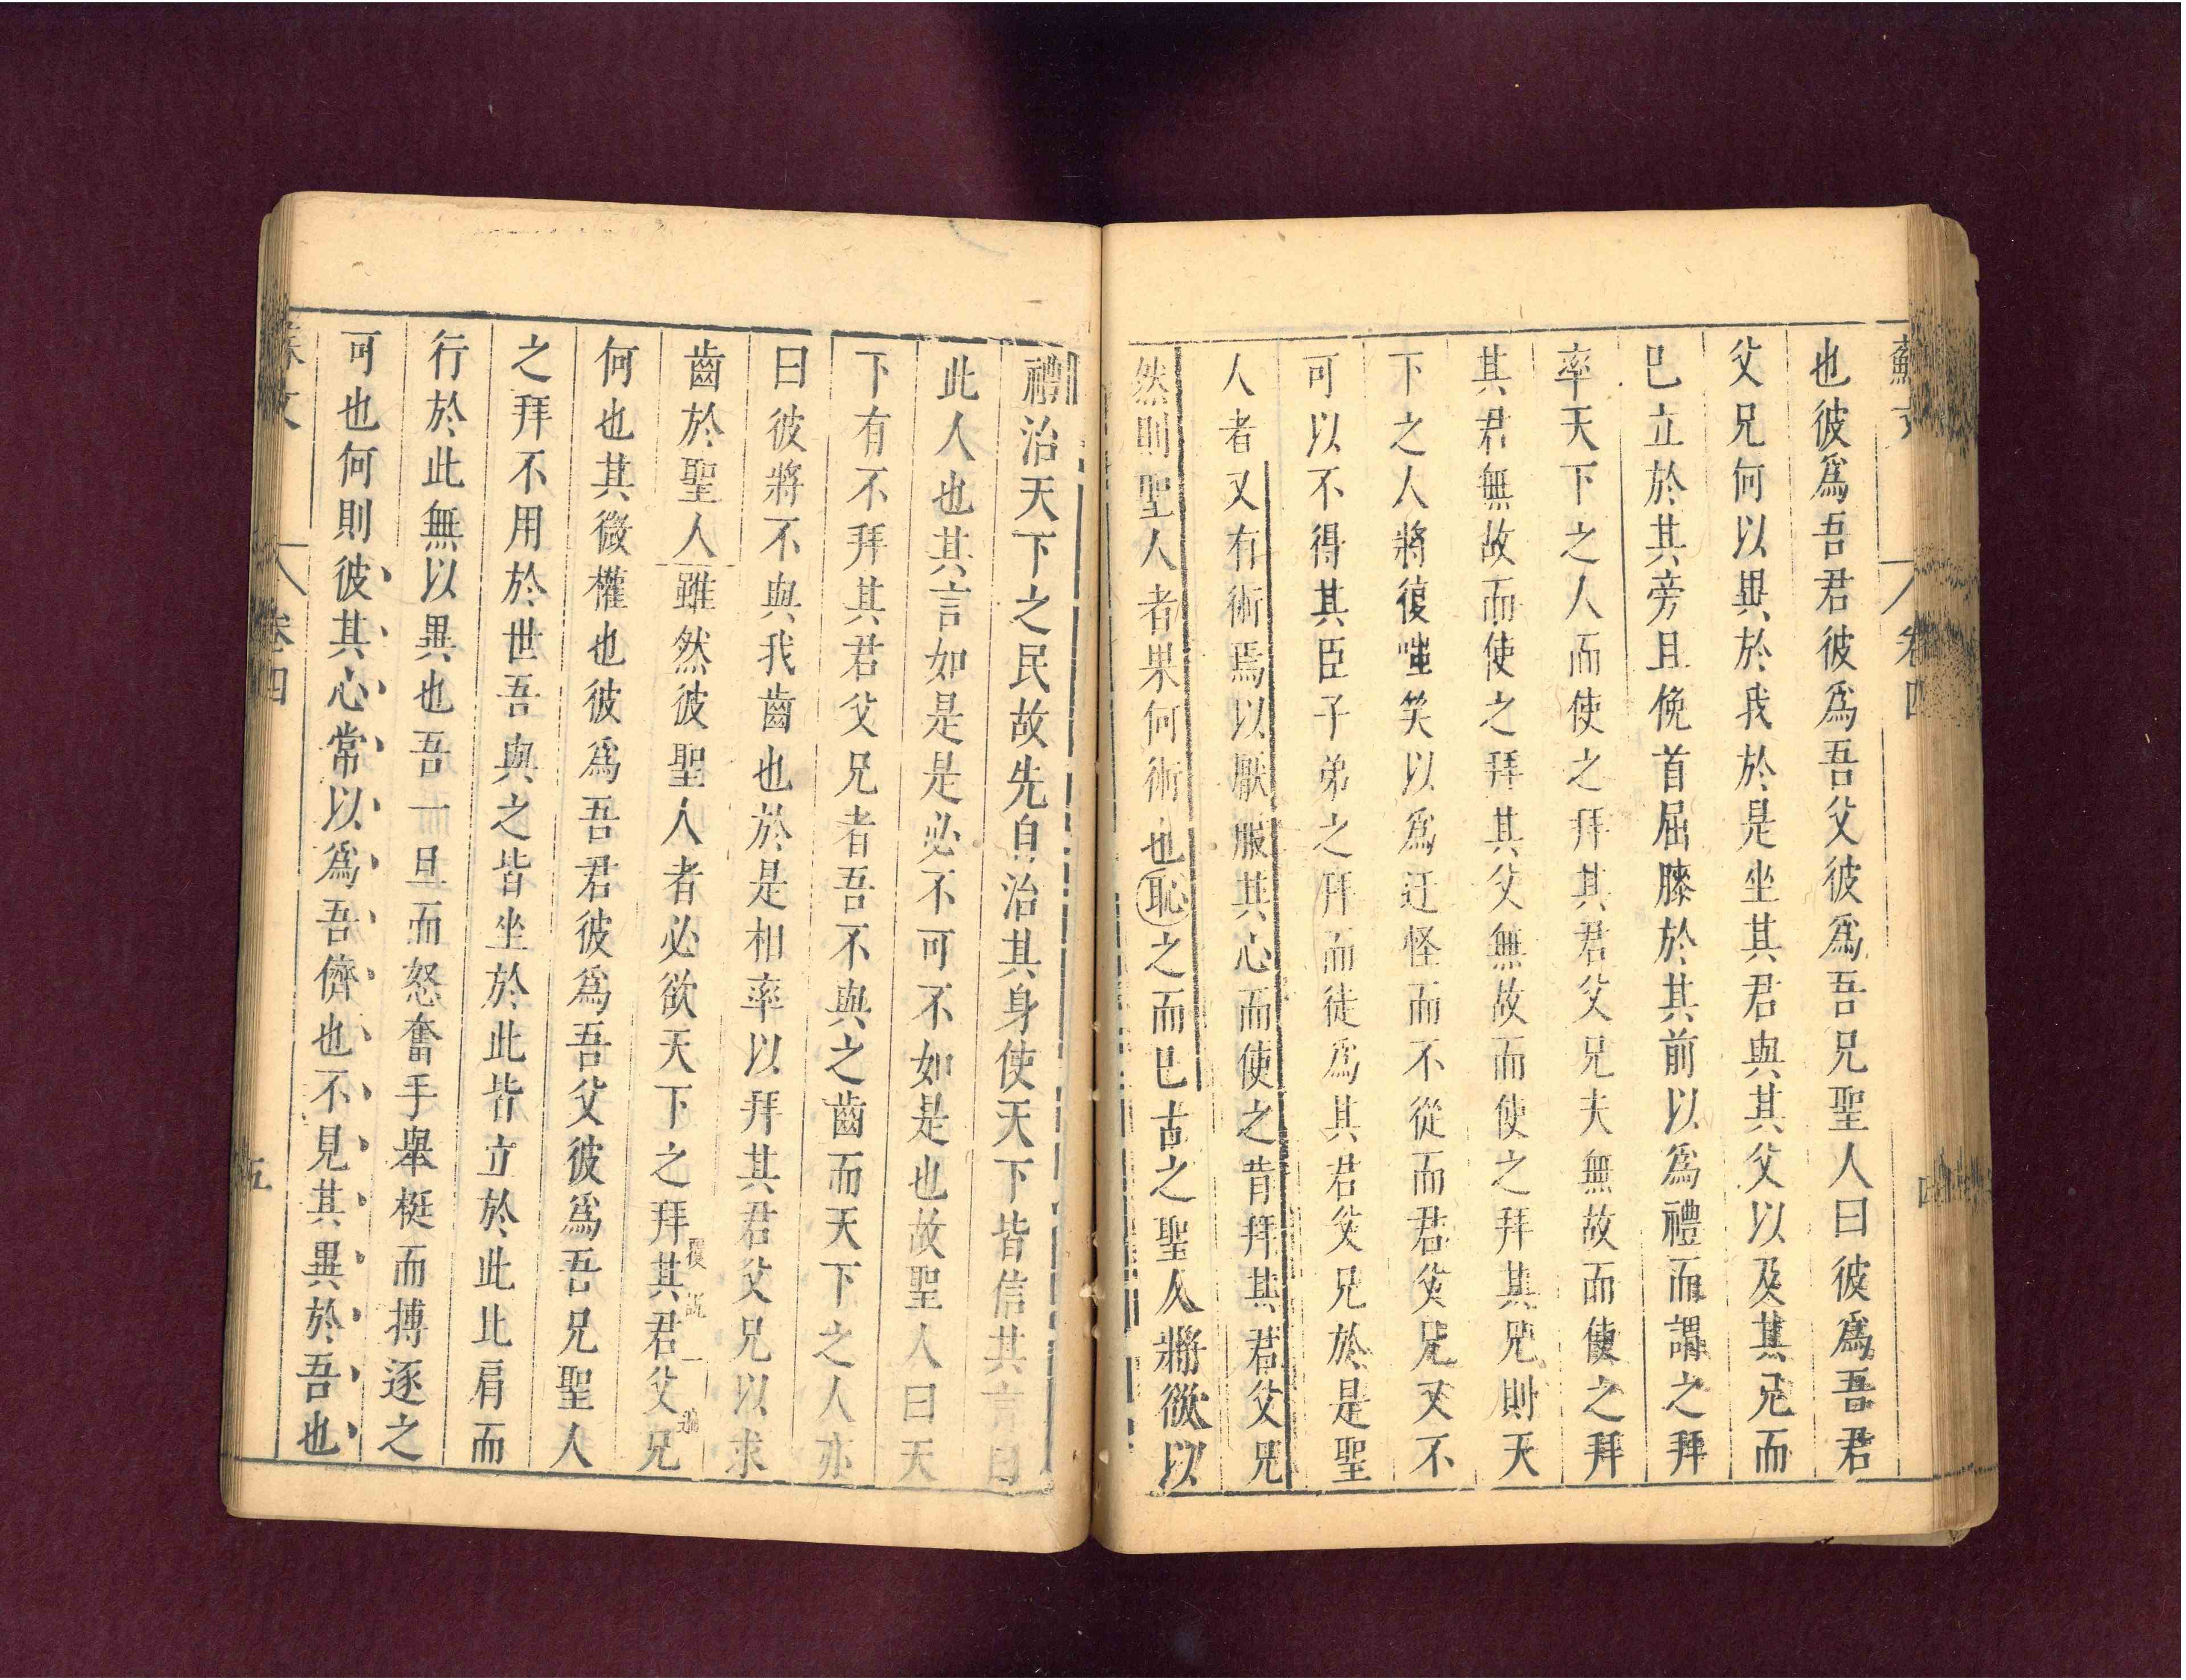 蘇文 卷四 四
也彼爲吾君彼爲吾父彼爲吾兄聖人曰彼爲吾君
父兄何以異於我於是坐其君與其父以及其兄而
已立於其旁且俛首屈膝於其前以爲禮而謂之拜
率天下之人而使之拜其君父兄夫無故而使之拜
其君無故而使之拜其父無故而使之拜其兄則天
下之人將復嗤笑以爲迂怪而不從而君父兄又不
可以不得其臣子弟之拜而徒爲其君父兄於是聖
人者又有術焉以厭服其心而使之肯拜其君父兄
然則聖人者果何術也恥之而已古之聖人將欲以
禮治天下之民故先自治其身使天下皆信其言曰
此人也其言如是是必不可不如是也故聖人曰天
下有不拜其君父兄者吾不與之齒而天下之人亦
曰彼將不與我齒也於是相率以拜其君父兄以求
齒於聖人雖然彼聖人者必欲天下之拜其君父兄
復說一番
何也其微權也彼爲吾君彼爲吾父彼爲吾兄聖人
之拜不用於世吾與之皆坐於此皆立於此比肩而
行於此無以異也吾一旦而怒奮手舉梃而搏逐之
可也何則彼其心常以爲吾儕也不見其異於吾也
蘇文 卷四 五